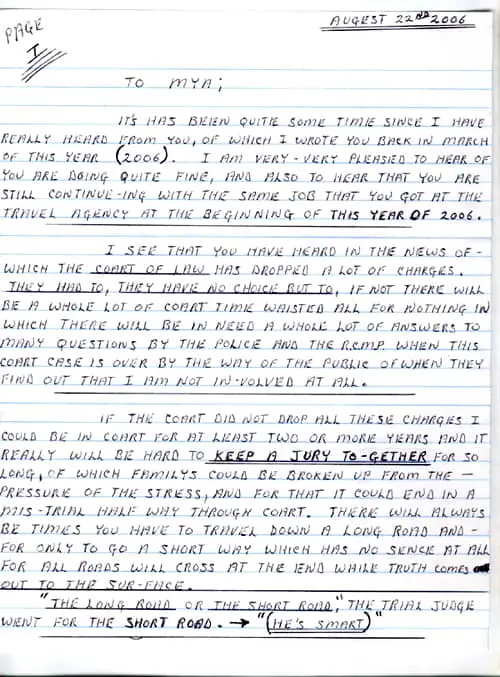 PAGE
I
AUGEST 22ND 2006
TO MYA;
IT'S HAS BEIEN QUITIE SOME TIME SINCE I HAVE
REALLY HEARD FROM YOU, OF WHICH I WROTE YOU BACK IN MARCH
OF THIS YEAR (2006). I AM VERY-VERY PLEASIED TO HEAR OF
YOU ARE DOING QUITE FINE, AND ALSO TO HEAR THAT YOU ARE
STILL CONTINUE-ING WITH THE SAME JOB THAT YOU GOT AT THE
TRAVEL AGENCY AT THE BEGINNING OF THIS YEAR OF 2006.
I SEE THAT YOU HAVE HEARD IN THE NEWS OF-
WHICH THE COART OF LAW HAS DROPPED A LOT OF CHARGES.
THEY HAD TO, THEY HAVE NO CHOICE BUT TO, IF NOT THERE WILL
BE A WHOLE LOT OF COART TIME WAISTED ALL FOR NOTHING IN
WHICH THERE WILL BE IN NEED A WHOLE LOT OF ANSWERS TO
MANY QUESTIONS BY THE POLICE AND THE R.C.M.P. WHEN THIS
COART CASE IS OVER BY THE WAY OF THE PUBLIC OF WHEN THEY
FIND OUT THAT I AM NOT IN-VOLVED AT ALL.
IF THE COART DID NOT DROP ALL THESE CHARGES I
COULD BE IN COART FOR AT LEAST TWO OR MORE YEARS AND IT
REALLY WILL BE HARD TO KEEP A JURY TO-GETHER FOR SO
LONG, OF WHICH FAMILYS COULD BE BROKEN UP FROM THE -
PRESSURE OF THE STRESS, AND FOR THAT IT COULD END IN A
MIS-TRIAL HALF WAY THROUGH COART. THERE WILL ALWAYS
BE TIMES YOU HAVE TO TRAVEL DOWN A LONG ROAD AND-
FOR ONLY TO GO A SHORT WAY WHICH HAS NO SENCE AT ALL
FOR ALL ROADS WILL CROSS AT THE IEND WHILE TRUTH COMES
OUT TO THE SUR-FACE.
"THE LONG ROAD OR THE SHORT ROAD," THE TRIAL JUDGE
WENT FOR THE SHORT ROAD. → "(HE'S SMART)"